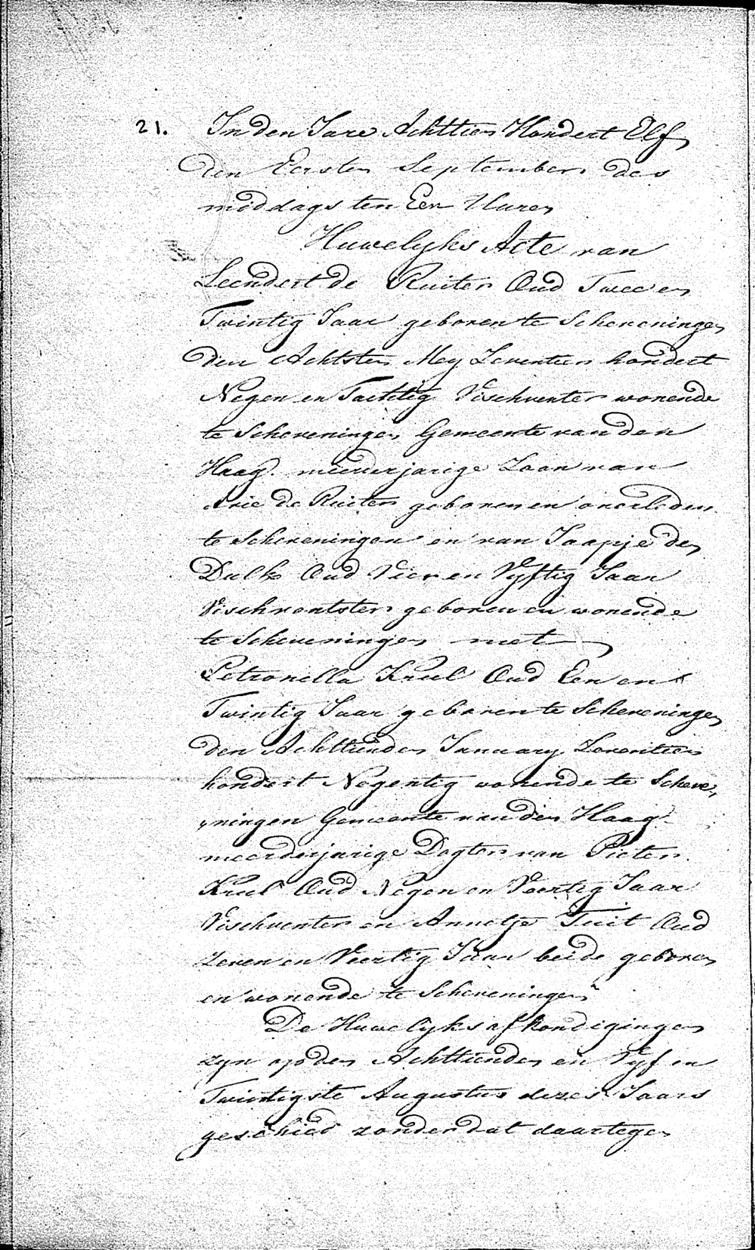 21. In den Jare Achttien Hondert Elf
den Eersten September des
middags ten Een Uure
Huwelyks Acte van
Leendert de Ruiter Oud Twee en
Twintig Jaar geboren te Scheveningen
den Achtsten Mey Zeventien hondert
Negen en Tachtig Vischventer wonende
te Scheveningen Gemeente van den
Haag meerderjarige Zoon van
Arie de Ruiter geboren en overleden
te Scheveningen en van Jaapje den
Dulk Oud Vier en Vyftig Jaar
Vischventster geboren en wonende
te Scheveningen met
Petronella Krul Oud Een en
Twintig Jaar geboren te Scheveningen
den Achttienden January Zeventien
hondert Negentig wonende te Scheve,
,ningen Gemeente van den Haag
meerderjarige Dogter van Pieter
Krul Oud Negen en Veertig Jaar
Vischventer en Annetje Tuit Oud
Zeven en Veertig Jaar beide geboren
en wonende te Scheveningen
De Huwelyks afkondigingen
zyn op den Achttienden en Vyf en
Twintigste Augustus dezes Jaars
geschied zonder dat daartegen